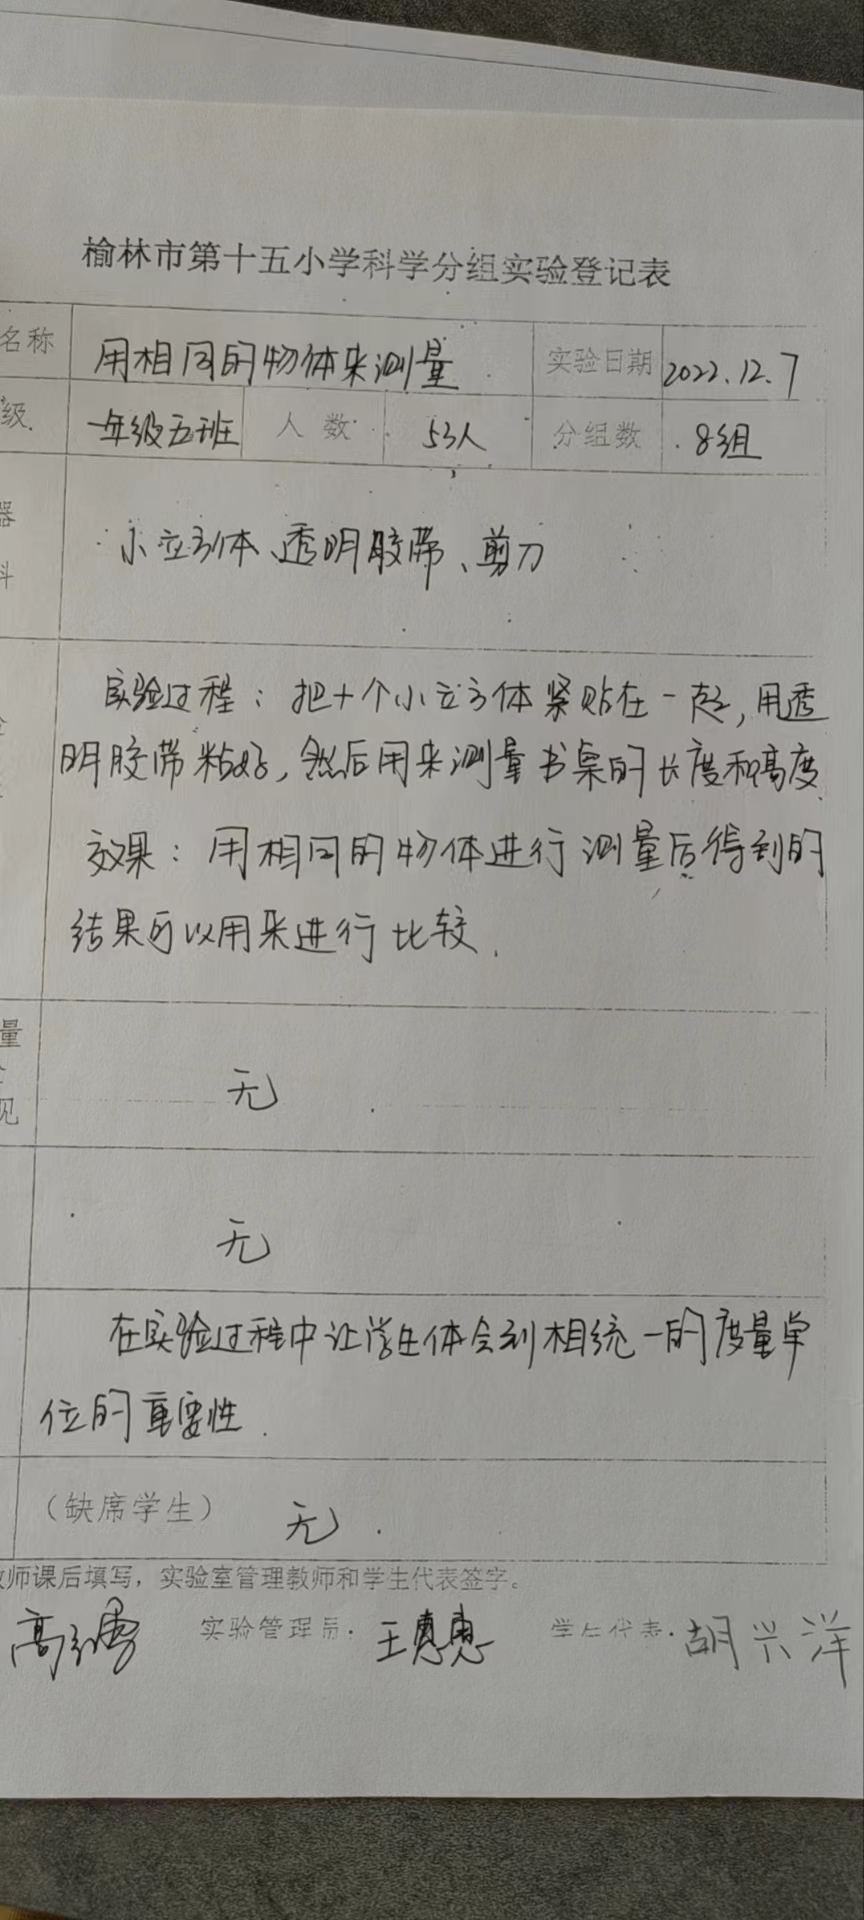 榆林市第十五小学科学分组实验登记表
名称 用相同的物体来测量 实验日期 2022.12.7
级 一年级五班 人数 53人 分组数 8组
器
料
小立方体、透明胶带、剪刀
实验过程：把十个小立方体紧贴在一起，用透
明胶带粘好，然后用来测量书桌的长度和高度.
效果：用相同的物体进行测量后得到的
结果可以用来进行比较.
量
见
无
无
在实验过程中让学生体会到相统一的度量单
位的重要性.
（缺席学生） 无.
师课后填写，实验室管理教师和学生代表签字。
高 实验管理员：王惠惠 学生代表：胡兴洋